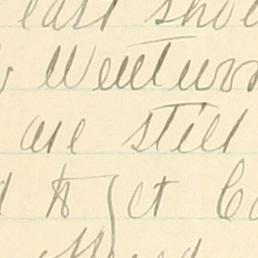 last shoe
Wentwor
are still
to get Co